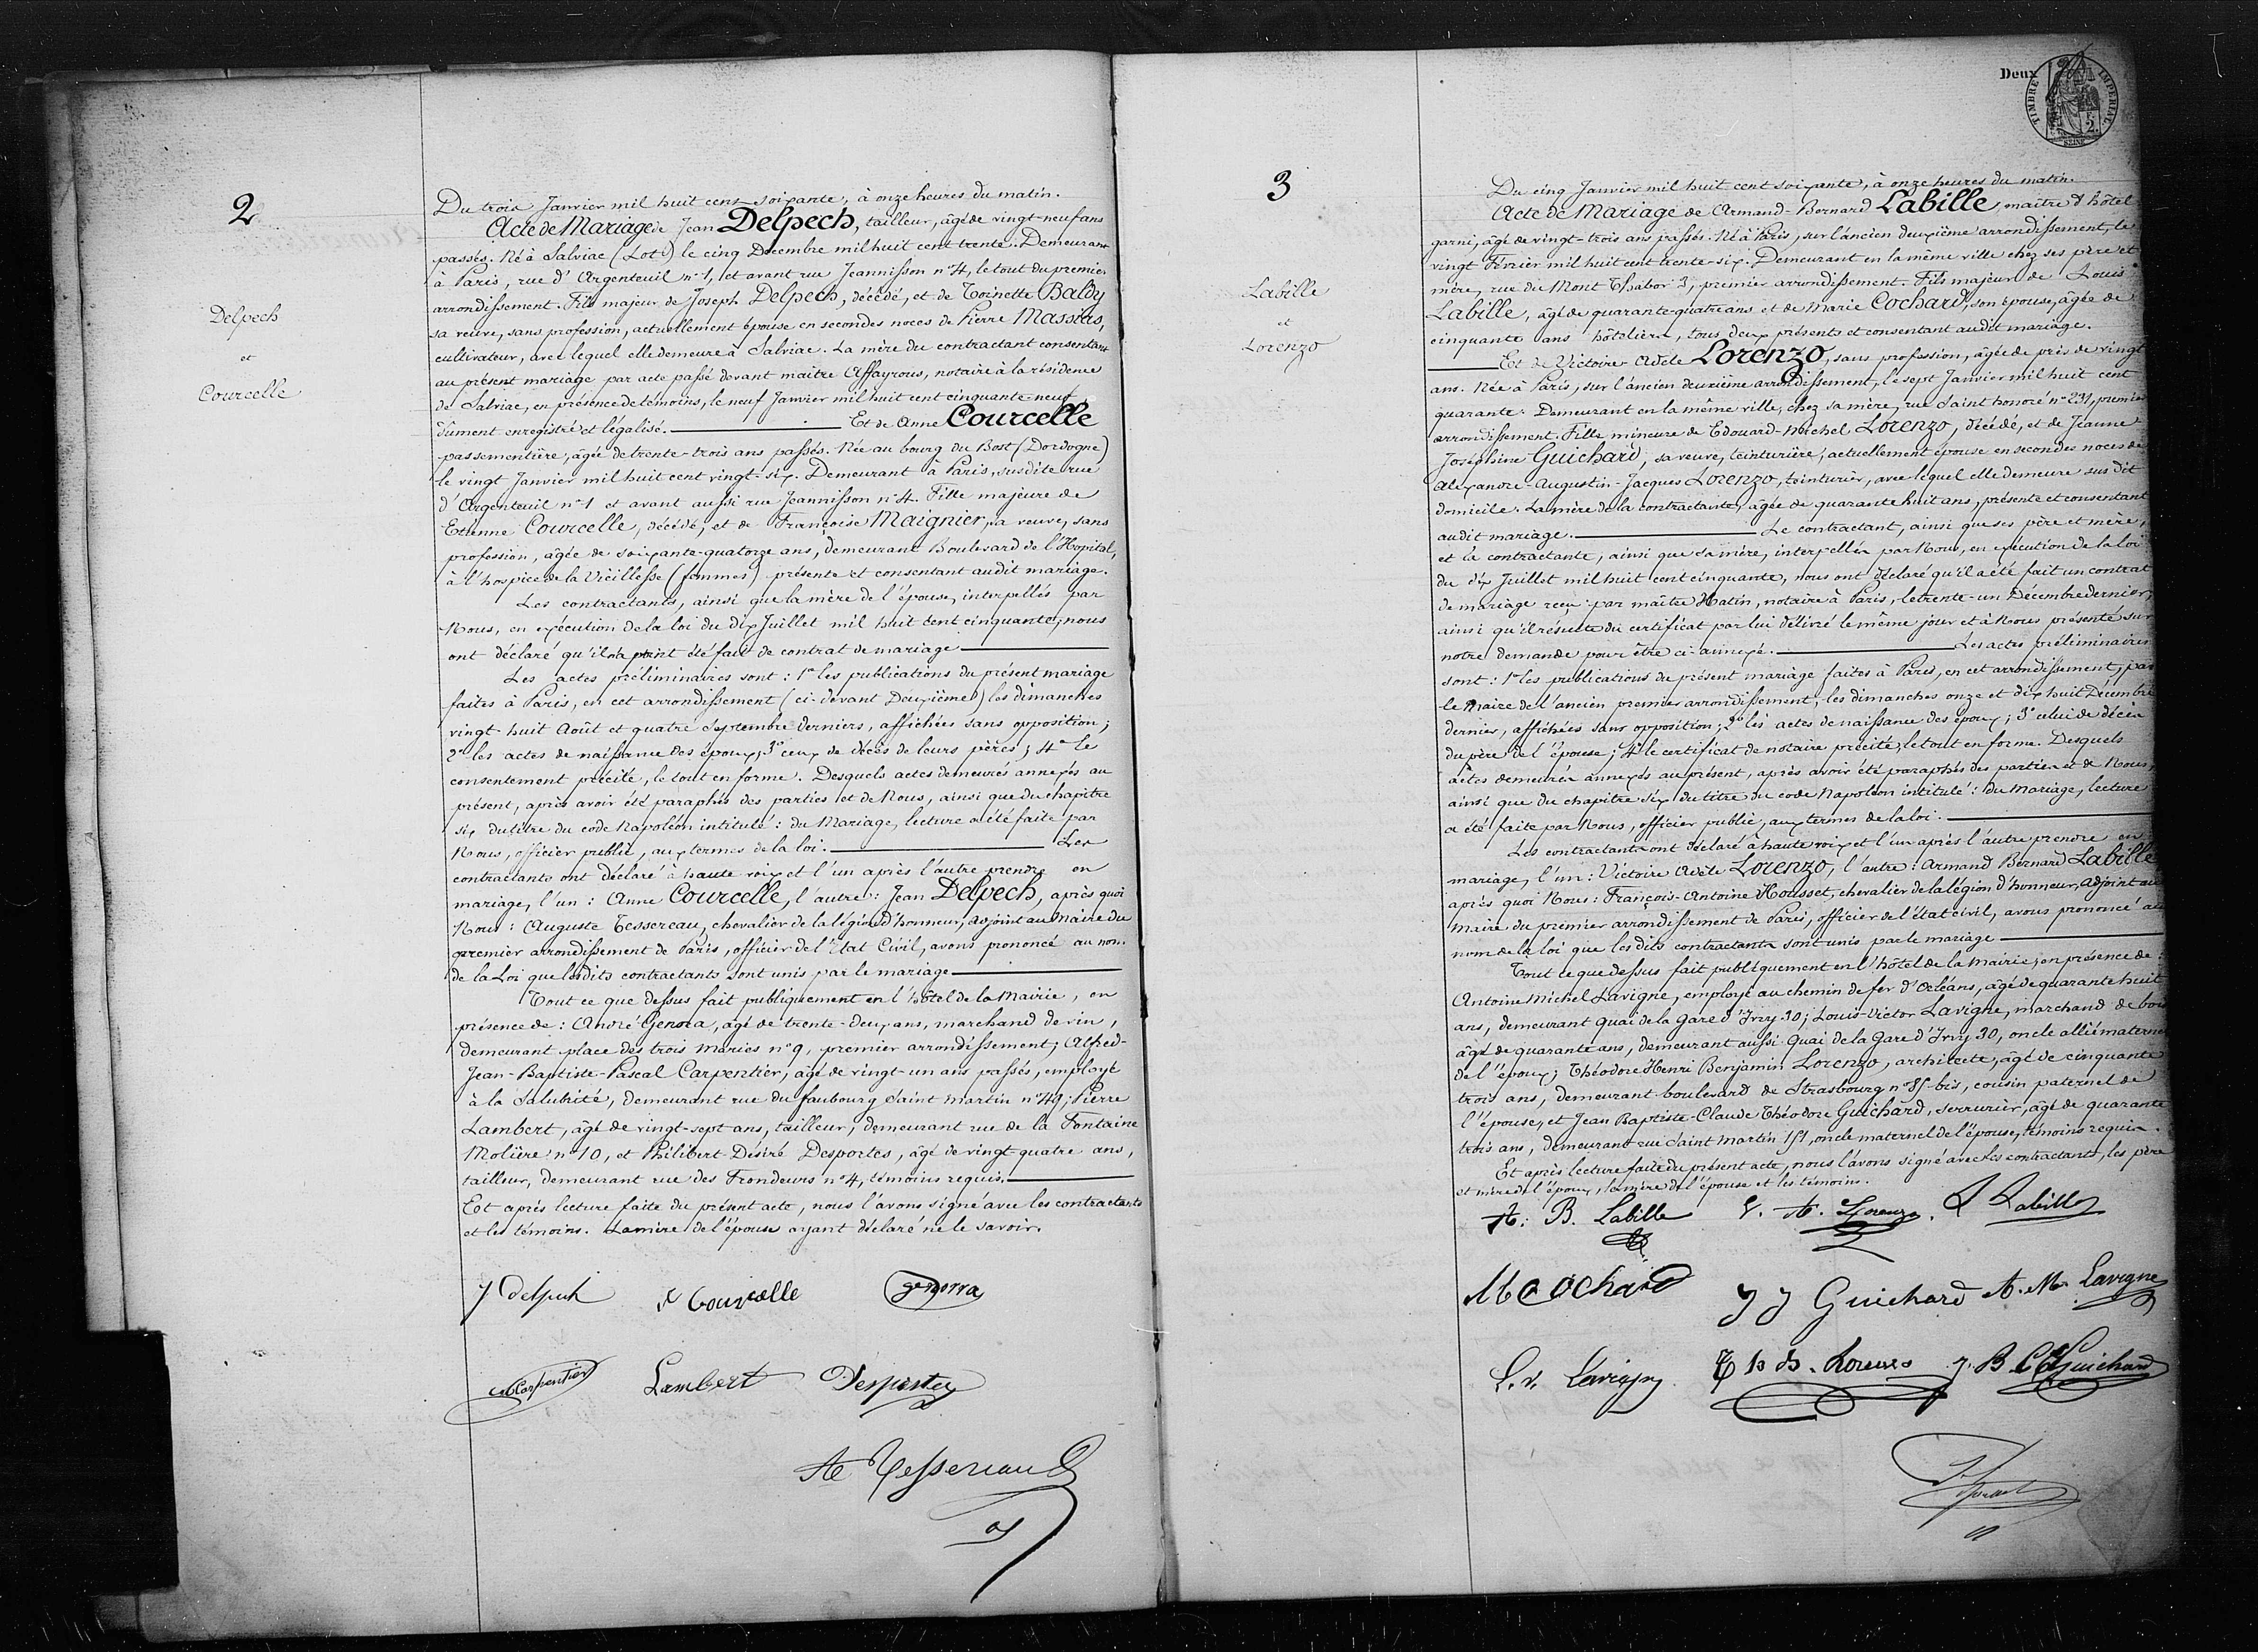 2
Delpech
et
Courcelle
Du trois Janvier mil huit cent soixante, à onze heures du matin.
Acte de Mariage de Jean Delpech, tailleur, âgé de vingt-neuf ans
passés. Né à Salviac (Lot) le cinq Décembre mil huit cent trente. Demeurant
à Paris, rue d'Argenteuil n° 1, et avant rue Jeannisson n° 4, le tout du premier
arrondissement. Fils majeur de Joseph Delpech, décédé, et de Toinette Baldy
sa veuve, sans profession, actuellement épouse en secondes noces de Pierre Massias,
cultivateur, avec lequel elle demeure à Salviac. La mère du contractant consentant
au présent mariage par acte passé devant maître Affayrous, notaire à la résidence
de Salviac, en présence de témoins, le neuf Janvier mil huit cent cinquante-neuf,
dûment enregistré et légalisé. Et de Anne Courcelle
passementière, âgée de trente-trois ans passés. Née au bourg du Bost (Dordogne)
le vingt Janvier mil huit cent vingt-six. Demeurant à Paris, susdite rue
d'Argenteuil n° 1 et avant aussi rue Jeannisson n° 4. Fille majeure de
Etienne Courcelle, décédé, et de Françoise Maignier, sa veuve, sans
profession, âgée de soixante-quatorze ans, demeurant Boulevard de l'Hopital,
à l'hospice de la Vieillesse (femmes) présente et consentant audit mariage.
Les contractants, ainsi que la mère de l'épouse, interpellés par
Nous, en exécution de la loi du dix Juillet mil huit cent cinquante, nous
ont déclaré qu'il n'a point été fait de contrat de mariage
Les actes préliminaires sont : 1° les publications du présent mariage
faites à Paris, en cet arrondissement (ci-devant Deuxième) les dimanches
vingt-huit Août et quatre Septembre derniers, affichées sans opposition;
2° les actes de naissance des époux; 3° ceux de décès de leurs pères; 4° le
consentement précité, le tout en forme. Desquels actes demeurés annexés au
présent, après avoir été paraphés des parties et de Nous, ainsi que du chapitre
six du titre du code Napoléon intitulé : du Mariage, lecture a été faite par
Nous, officier public, aux termes de la loi. Les
contractants ont déclaré à haute voix et l'un après l'autre prendre en
mariage, l'un : Anne Courcelle, l'autre : Jean Delpech, après quoi
Nous : Auguste Tessereau, chevalier de la légion d'honneur, adjoint au Maire du
premier arrondissement de Paris, officier de l'Etat Civil, avons prononcé au nom
de la Loi que lesdits contractants sont unis par le mariage
Tout ce que dessus fait publiquement en l'hôtel de la Mairie, en
présence de : André Genova, âgé de trente-deux ans, marchand de vin,
demeurant place des trois Maries n° 9, premier arrondissement; Alfred-
Jean-Baptiste-Pascal Carpentier, âgé de vingt-un ans passés, employé
à la Salubrité, demeurant rue du faubourg Saint Martin n° 49; Pierre
Lambert, âgé de vingt-sept ans, tailleur, demeurant rue de la Fontaine
Molière n° 10, et Philibert Désiré Desportes, âgé de vingt-quatre ans,
tailleur, demeurant rue des Frondeurs n° 4, témoins requis.
Et après lecture faite du présent acte, nous l'avons signé avec les contractants
et les témoins. La mère de l'épouse ayant déclaré ne le savoir.
J Delpech Courcelle genorra
Carpentier Lambert Desportes
Ate Tessereau
3
Labille
et
Lorenzo
Deux
TIMBRE IMPERIAL
2.
SEINE
Du cinq Janvier mil huit cent soixante, à onze heures du matin.
Acte de Mariage de Armand-Bernard Labille, maître d'hôtel
garni, âgé de vingt-trois ans passés. Né à Paris, sur l'ancien deuxième arrondissement, le
vingt Février mil huit cent trente-six. Demeurant en la même ville chez ses père et
mère, rue du Mont Thabor 3, premier arrondissement. Fils majeur de Louis
Labille, âgé de quarante-quatre ans et de Marie Cochard, son épouse, âgée de
cinquante ans hôtelière, tous deux présents et consentant audit mariage.
Et de Victoire Adèle Lorenzo, sans profession, âgée de près de vingt
ans. Née à Paris, sur l'ancien deuxième arrondissement, le sept Janvier mil huit cent
quarante. Demeurant en la même ville, chez sa mère, rue Saint honoré n° 231, premier
arrondissement. Fille mineure de Edouard-Michel Lorenzo, décédé, et de Jeanne
Joséphine Guichard, sa veuve, teinturière, actuellement épouse en secondes noces de
Alexandre-Augustin-Jacques Lorenzo, teinturier, avec lequel elle demeure sus dit
domicile. La mère de la contractante, âgée de quarante huit ans, présente et consentant
audit mariage. Le contractant, ainsi que ses père et mère,
et la contractante, ainsi que sa mère, interpellés par Nous, en exécution de la loi
du dix Juillet mil huit cent cinquante, nous ont déclaré qu'il a été fait un contrat
de mariage reçu par maître Hatin, notaire à Paris, le trente-un Décembre dernier,
ainsi qu'il résulte du certificat par lui délivré le même jour et à Nous présenté sur
notre demande pour être ci-annexé. Les actes préliminaires
sont : 1° les publications du présent mariage faites à Paris, en cet arrondissement, par
le Maire de l'ancien premier arrondissement, les dimanches onze et dix huit Décembre
dernier, affichées sans opposition; 2° les actes de naissance des époux; 3° celui de décès
du père de l'épouse; 4° le certificat de notaire précité, le tout en forme. Desquels
actes demeurés annexés au présent, après avoir été paraphés des parties et de Nous,
ainsi que du chapitre six du titre du code Napoléon intitulé : du Mariage, lecture
a été faite par Nous, officier public, aux termes de la loi.
Les contractants ont déclaré à haute voix et l'un après l'autre prendre en
mariage, l'un : Victoire Adèle Lorenzo, l'autre : Armand Bernard Labille
après quoi Nous : François-Antoine Housset, chevalier de la légion d'honneur, adjoint au
Maire du premier arrondissement de Paris, officier de l'état civil, avons prononcé au
nom de la loi que lesdits contractants sont unis par le mariage
Tout ce que dessus fait publiquement en l'hôtel de la Mairie, en présence de :
Antoine Michel Lavigne, employé au chemin de fer d'Orléans, âgé de quarante huit
ans, demeurant Quai de la Gare d'Ivry 30; Louis-Victor Lavigne, marchand de bois
âgé de quarante ans, demeurant aussi Quai de la Gare d'Ivry 30, oncle allié maternel
de l'époux; Théodore Henri Benjamin Lorenzo, architecte, âgé de cinquante
trois ans, demeurant boulevard de Strasbourg n° 85-bis, cousin paternel de
l'épouse, et Jean Baptiste-Claude Théodore Guichard, serrurier, âgé de quarante
trois ans, demeurant rue Saint Martin 151, oncle maternel de l'épouse, témoins requis.
Et après lecture faite du présent acte, nous l'avons signé avec les contractants, les père
et mère de l'époux, la mère de l'épouse et les témoins.
A. B. Labille V. A. Lorenzo L Labille
M Cochard J J Guichard A. M. Lavigne
L. V. Lavigne T h B. Lorenzo J. B C T Guichard